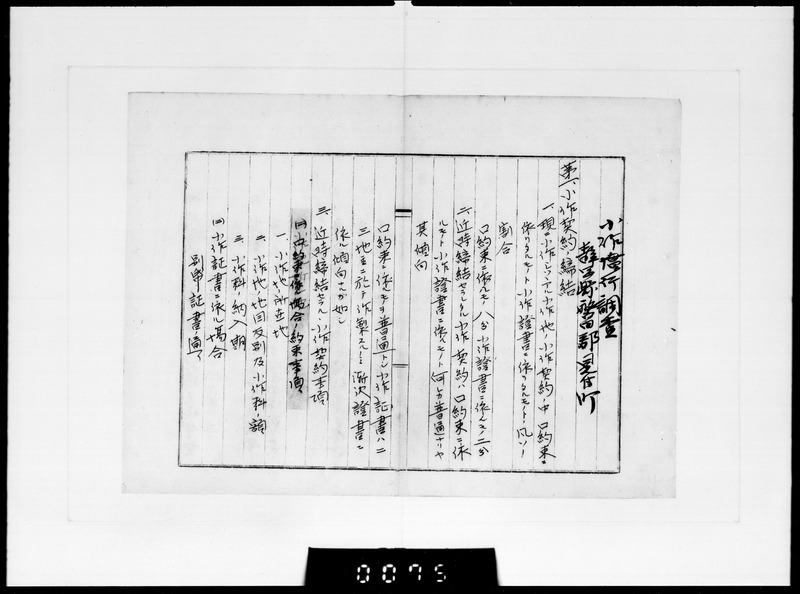 小作慣行調査
第一、小作契約ノ締結
一、現ニ小作シツヽアル小作地ノ小作契約中口約束ニ
依リタルモノト小作證書ニ依リタルモノトノ凡ソノ
割合
口約束ニ依ルモノ八分小作證書ニ依ルモノ二分
二、近時締結セラレタル小作契約ハ口約束ニ依
ルモノト小作證書ニ依ルモノト何レカ普通ナリヤ
其傾向
口約束ニ依ルヲ普通トシ小作証書ハ二
三地主ニ於テ作製スルモ漸次證書ニ
依ル傾向ナルガ如シ
三、近時締結セラルヽ小作契約事項
(一)口約束ニ依ル場合ノ約束事項
一、小作地ノ所在地
二、小作地ノ地目反別及小作料ノ額
三、小作料ノ納入期
(二)小作証書ニ依ル場合
別帋証書ノ通リ
0075